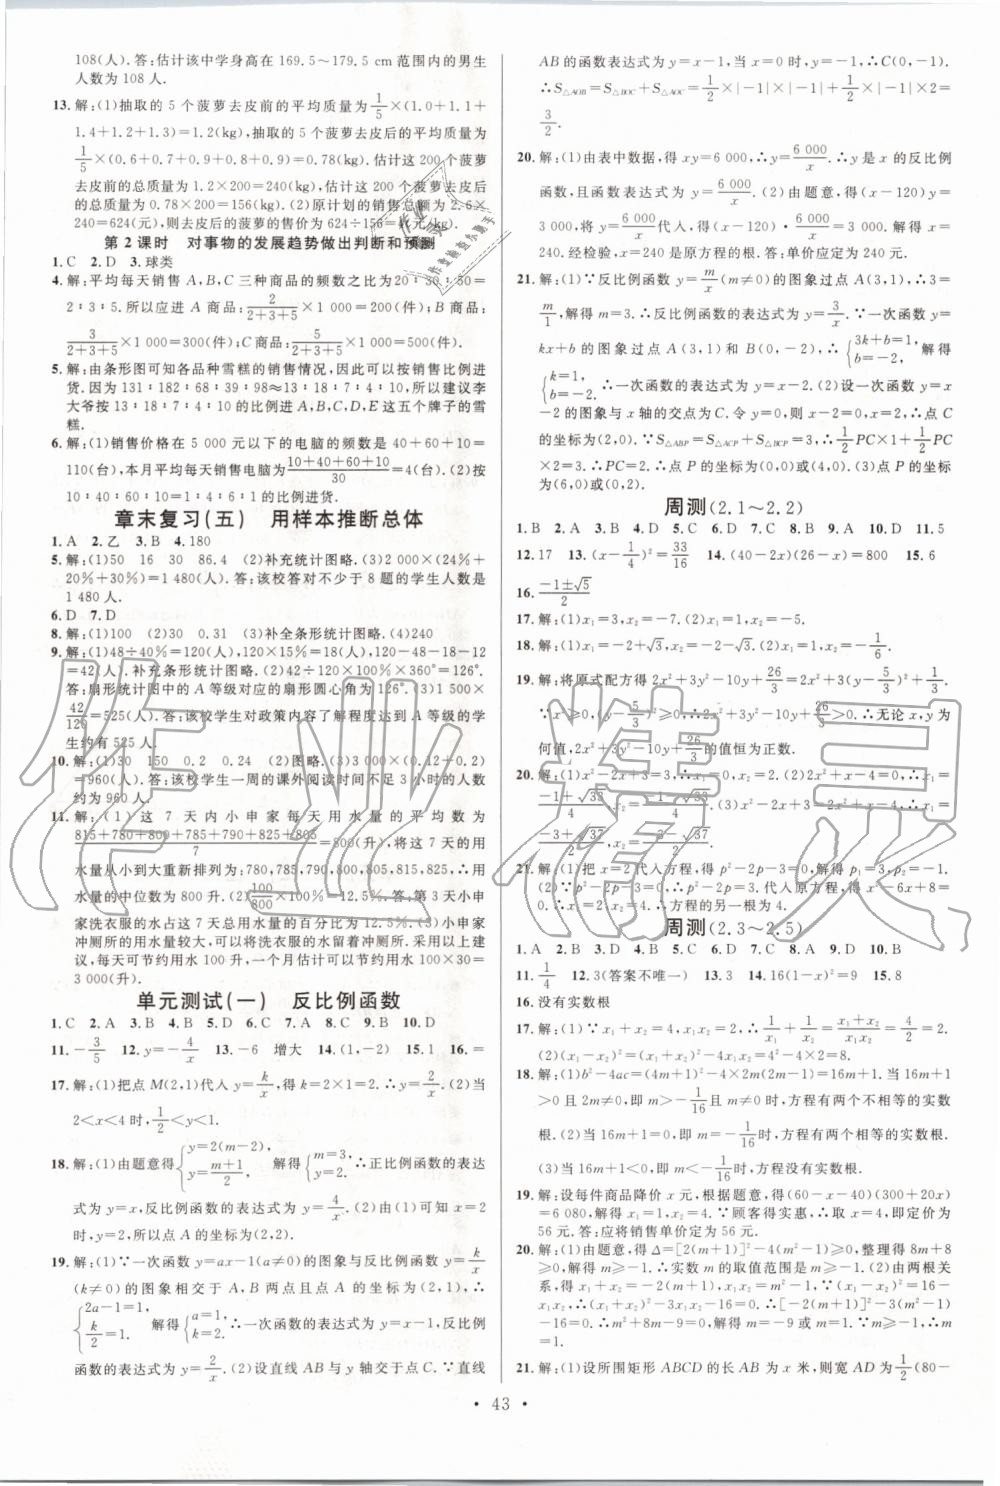 108(人). 答:估计该中学身高在 169.5～179.5 cm 范围内的男生
人数为 108 人.
13. 解:(1)抽取的 5 个菠萝去皮前的平均质量为1/5×(1.0+1.1+
1.4+1.2+1.3)=1.2(kg),抽取的 5 个菠萝去皮后的平均质量为
1/5×(0.6+0.7+0.9+0.8+0.9)=0.78(kg). 估计这 200 个菠萝
去皮前的总质量为 1.2×200=240(kg),估计这 200 个菠萝去皮后
的总质量为 0.78×200=156(kg). (2)原计划的销售总额为 2.6×
240=624(元),则去皮后的菠萝的售价为 624÷156=4(元/kg).
第 2 课时　对事物的发展趋势做出判断和预测
1. C　2. D　3. 球类
4. 解:平均每天销售 A,B,C 三种商品的频数之比为20∶30∶50=
2∶3∶5. 所以应进 A 商品:2/(2+3+5)×1 000=200(件);B 商品:
3/(2+3+5)×1 000=300(件);C商品:5/(2+3+5)×1 000=500(件).
5. 解:由条形图可知各品种雪糕的销售情况,因此可以按销售比例进
货. 因为 131∶182∶68∶39∶98≈13∶18∶7∶4∶10,所以建议李
大爷按 13∶18∶7∶4∶10 的比例进 A,B,C,D,E 这五个牌子的雪
糕.
6. 解:(1)销售价格在 5 000 元以下的电脑的频数是 40+60+10=
110(台),本月平均每天销售电脑为(10+40+60+10)/30=4(台). (2)按
10∶40∶60∶10=1∶4∶6∶1 的比例进货.
章末复习(五)　用样本推断总体
1. A　2. 乙　3. B　4. 180
5. 解:(1)50　16　30　86.4　(2)补充统计图略. (3)2 000×(24%+
20%+30%)=1 480(人). 答:该校答对不少于 8 题的学生人数是
1 480 人.
6. D　7. D
8. 解:(1)100　(2)30　0.31　(3)补全条形统计图略. (4)240
9. 解:(1)48÷40%=120(人),120×15%=18(人),120-48-18-12
=42(人). 补充条形统计图略. (2)42÷120×100%×360°=126°.
答:扇形统计图中的 A 等级对应的扇形圆心角为 126°. (3)1 500×
42/120=525(人). 答:该校学生对政策内容了解程度达到 A 等级的学
生约有 525 人.
10. 解:(1)30　150　0.2　0.24　(2)略　(3)3 000×(0.12+0.2)
=960(人). 答:该校学生一周的课外阅读时间不足 3 小时的人数
约为 960 人.
11. 解:(1)这 7 天内小申家每天用水量的平均数为
(815+780+800+785+790+825+805)/7=800(升),将这 7 天的用
水量从小到大重新排列为:780,785,790,800,805,815,825,∴用
水量的中位数为 800 升. (2)100/800×100%=12.5%. 答:第 3 天小申
家洗衣服的水占这 7 天总用水量的百分比为 12.5%. (3)小申家
冲厕所的用水量较大,可以将洗衣服的水留着冲厕所,采用以上建
议,每天可节约用水 100 升,一个月估计可以节约用水 100×30=
3 000(升).
单元测试(一)　反比例函数
1. C　2. A　3. B　4. B　5. D　6. C　7. A　8. C　9. B　10. D
11. -3/5　12. y=-4/x　13. -6　增大　14. (1,-2)　15. 1　16. =
17. 解:(1)把点 M(2,1)代入 y=k/x,得 k=2×1=2. ∴y=2/x. (2)当
2<x<4 时,1/2<y<1.
18. 解:(1)由题意得{y=2(m-2), y=(m+1)/2, 解得{m=3, y=2. ∴正比例函数的表达
式为 y=x,反比例函数的表达式为 y=4/x. (2)由(1)可知 x=2
时,y=2,所以点 A 的坐标为(2,2).
19. 解:(1)∵一次函数 y=ax-1(a≠0)的图象与反比例函数 y=k/x
(k≠0)的图象相交于 A,B 两点且点 A 的坐标为(2,1),∴
{2a-1=1, k/2=1. 解得{a=1, k=2. ∴一次函数的表达式为 y=x-1,反比例
函数的表达式为 y=2/x. (2)设直线 AB 与 y 轴交于点 C. ∵直线
AB 的函数表达式为 y=x-1,当 x=0 时,y=-1,∴C(0,-1).
∴S△AOB=S△BOC+S△AOC=1/2×|-1|×|-1|+1/2×|-1|×2=
3/2.
20. 解:(1)由表中数据,得 xy=6 000,∴y=6 000/x. ∴y 是 x 的反比例
函数,且函数表达式为 y=6 000/x. (2)由题意,得(x-120)y=
3 000,将 y=6 000/x代入,得(x-120)·6 000/x=3 000. 解得 x=
240. 经检验,x=240 是原方程的根. 答:单价应为 240 元.
21. 解:(1)∵反比例函数 y=m/x(m≠0)的图象过点 A(3,1),∴1=
m/1,解得 m=3. ∴反比例函数的表达式为 y=3/x. ∵一次函数 y=
kx+b 的图象过点 A(3,1)和 B(0,-2),∴{3k+b=1, b=-2. 解得
{k=1, b=-2. ∴一次函数的表达式为 y=x-2. (2)设一次函数 y=x
-2 的图象与 x 轴的交点为 C. 令 y=0,则 x-2=0,x=2,∴点 C
的坐标为(2,0). ∵S△ABP=S△ACP+S△BCP=3,∴1/2PC×1+1/2PC
×2=3. ∴PC=2. ∴点 P 的坐标为(0,0)或(4,0). ∴点 P 的坐标
为(6,0)或(2,0).
周测(2.1～2.2)
1. B　2. A　3. A　4. D　5. C　6. D　7. C　8. B　9. A　10. D　11. 5
12. 17　13. (x-1/4)²=33/16　14. (40-2x)(26-x)=800　15. 6
16. (-1±√5)/2
17. 解:(1)x₁=3,x₂=-7. (2)x₁=1,x₂=-5.
18. 解:(1)x₁=-2-√3,x₂=-2+√3. (2)x₁=1,x₂=-1/6.
19. 解:将原式配方得 2x²+3y²-10y+17=2x²+3(y-5/3)²+26/3.
∵x²≥0,(y-5/3)²≥0,∴2x²+3y²-10y+17≥26/3>0. ∴无论 x,y 为
何值,2x²+3y²-10y+26/3的值恒为正数.
20. 解:(1)x²-2x+3=
21. 解:(1)把 x=2 代入方程,得 p²-2p-3=0,解得 p₁=3,p₂=-1.
0. 解得 x₁=2,x₂=4. ∴方程的另一根为 4.
周测(2.3～2.5)
1. A　2. B　3. D　4. B　5. D　6. C　7. D　8. A　9. D　10. B
11. 1/4　12. 3(答案不唯一)　13. 3　14. 16(1-x)²=9　15. 8
16. 没有实数根
17. 解:(1)∵x₁+x₂=4,x₁x₂=2,∴1/x₁+1/x₂=(x₁+x₂)/(x₁x₂)=4/2=2.
(2)(x₁-x₂)²=(x₁+x₂)²-4x₁x₂=4²-4×2=8.
18. 解:(1)b²-4ac=(4m+1)²-4×2×(2m²-1)=16m+1. 当 16m+1
>0 且 2m≠0,即 m>-1/16且 m≠0 时,方程有两个不相等的实数
根. (2)当 16m+1=0,即 m=-1/16时,方程有两个相等的实数根.
(3)当 16m+1<0,即 m<-1/16时,方程没有实数根.
19. 解:设每件商品降价 x 元,根据题意,得(60-x-40)(300+20x)
=6 080,解得 x₁=1,x₂=4. ∵顾客得实惠,∴x=4. ∴定价为
56 元. 答:应将销售单价定为 56 元.
20. 解:(1)由题意,得 Δ=[2(m+1)]²-4(m²-1)≥0,整理得 8m+8
≥0,解得 m≥-1. ∴实数 m 的取值范围是 m≥-1. (2)由两根关
系,得 x₁+x₂=-2(m+1),x₁x₂=m²-1,∵(x₁-x₂)²=16-
x₁x₂,∴(x₁+x₂)²-3x₁x₂-16=0. ∴[-2(m+1)]²-3(m²-1)
-16=0. ∴m²+8m-9=0,解得 m=-9 或 m=1. ∵m≥-1,
∴m=1.
21. 解:(1)设所围矩形 ABCD 的长 AB 为 x 米,则宽 AD 为1/2(80-
· 43 ·
作业精灵